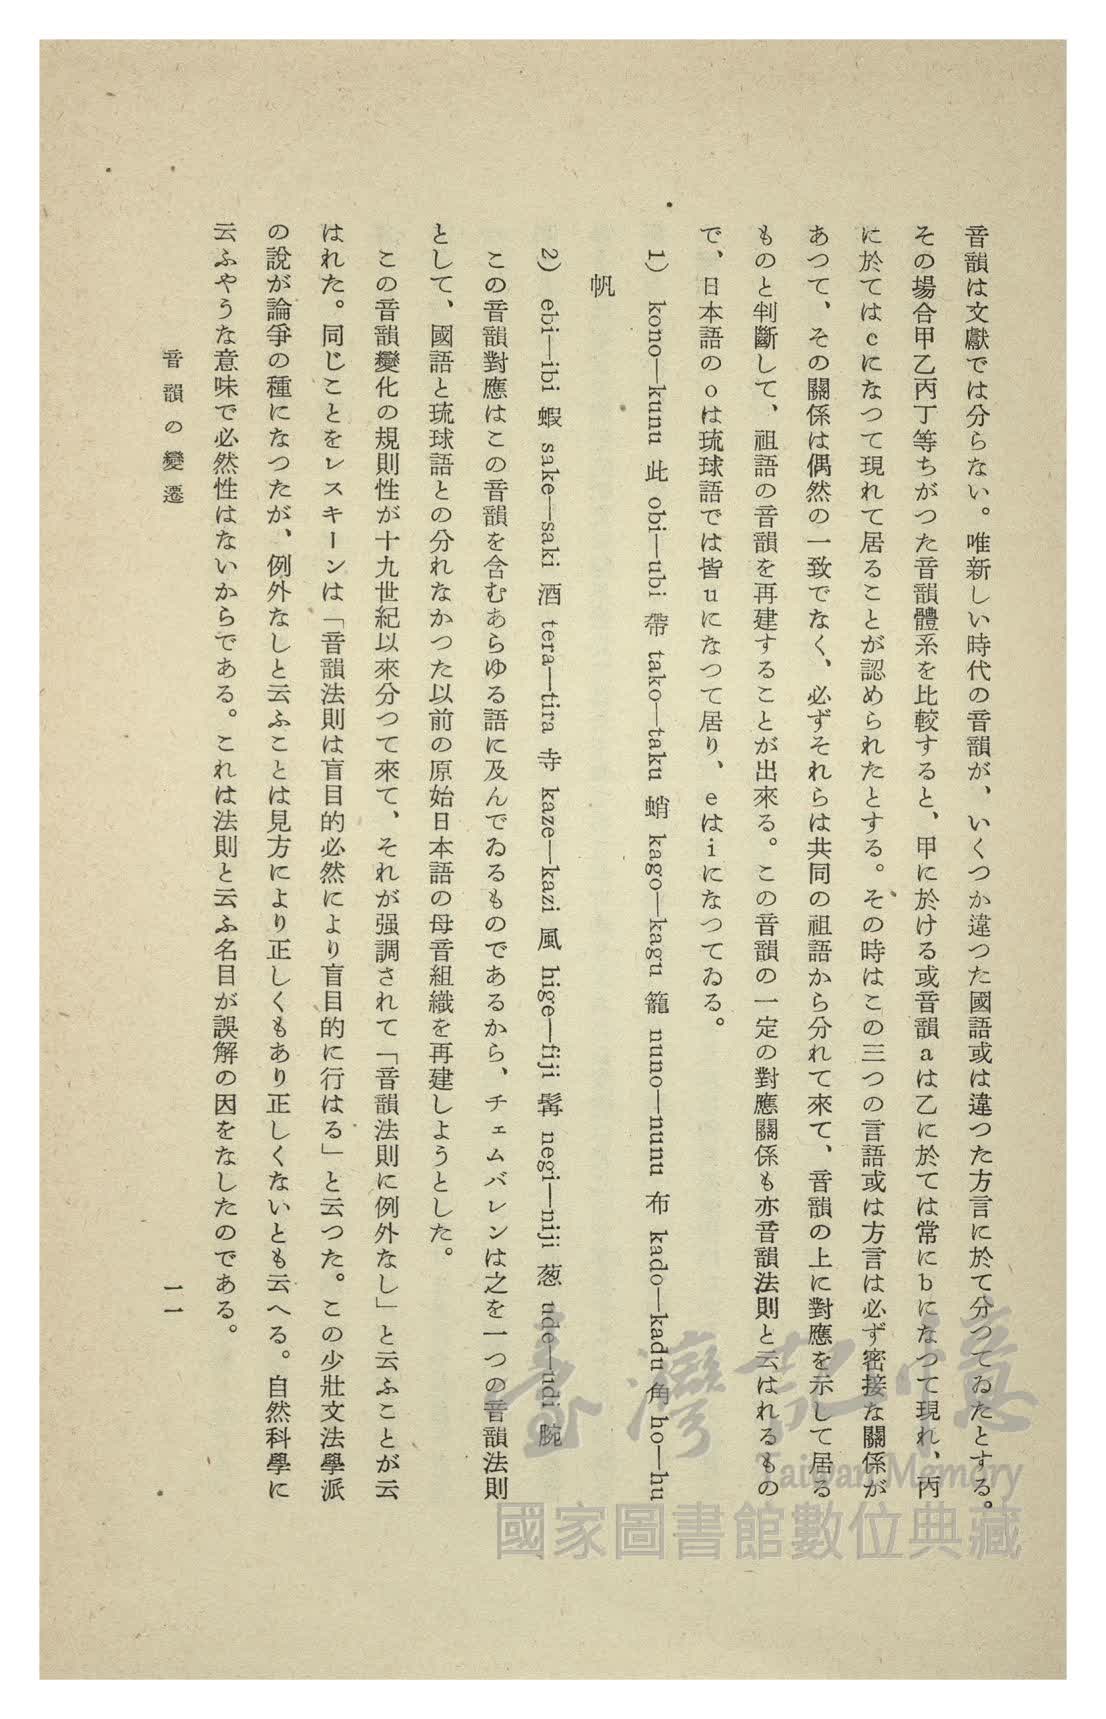 音韻は文獻では分らない。唯新しい時代の音韻が、いくつか違つた國語或は違つた方言に於て分つてゐたとする。
その場合甲乙丙丁等ちがつた音韻體系を比較すると、甲に於ける或音韻aは乙に於ては常にbになつて現れ、丙
に於てはcになつて現れて居ることが認められたとする。その時はこの三つの言語或は方言は必ず密接な關係が
あつて、その關係は偶然の一致でなく、必ずそれらは共同の祖語から分れて來て、音韻の上に對應を示して居る
ものと判斷して、祖語の音韻を再建することが出來る。この音韻の一定の對應關係も亦音韻法則と云はれるもの
で、日本語のoは琉球語では皆uになつて居り、eはiになつてゐる。
1) kono—kunu 此 obi—ubi 帶 tako—taku 蛸 kago—kagu 籠 nuno—nunu 布 kado—kadu 角 ho—hu
帆
2) ebi—ibi 蝦 sake—saki 酒 tera—tira 寺 kaze—kazi 風 hige—fiji 髯 negi—niji 葱 ude—udi 腕
この音韻對應はこの音韻を含むあらゆる語に及んでゐるものであるから、チェムバレンは之を一つの音韻法則
として、國語と琉球語との分れなかつた以前の原始日本語の母音組織を再建しようとした。
この音韻變化の規則性が十九世紀以來分つて來て、それが强調されて「音韻法則に例外なし」と云ふことが云
はれた。同じことをレスキーンは「音韻法則は盲目的必然により盲目的に行はる」と云つた。この少壯文法學派
の說が論爭の種になつたが、例外なしと云ふことは見方により正しくもあり正しくないとも云へる。自然科學に
云ふやうな意味で必然性はないからである。これは法則と云ふ名目が誤解の因をなしたのである。
音韻の變遷
一一
臺灣記憶
Taiwan Memory
國家圖書館數位典藏